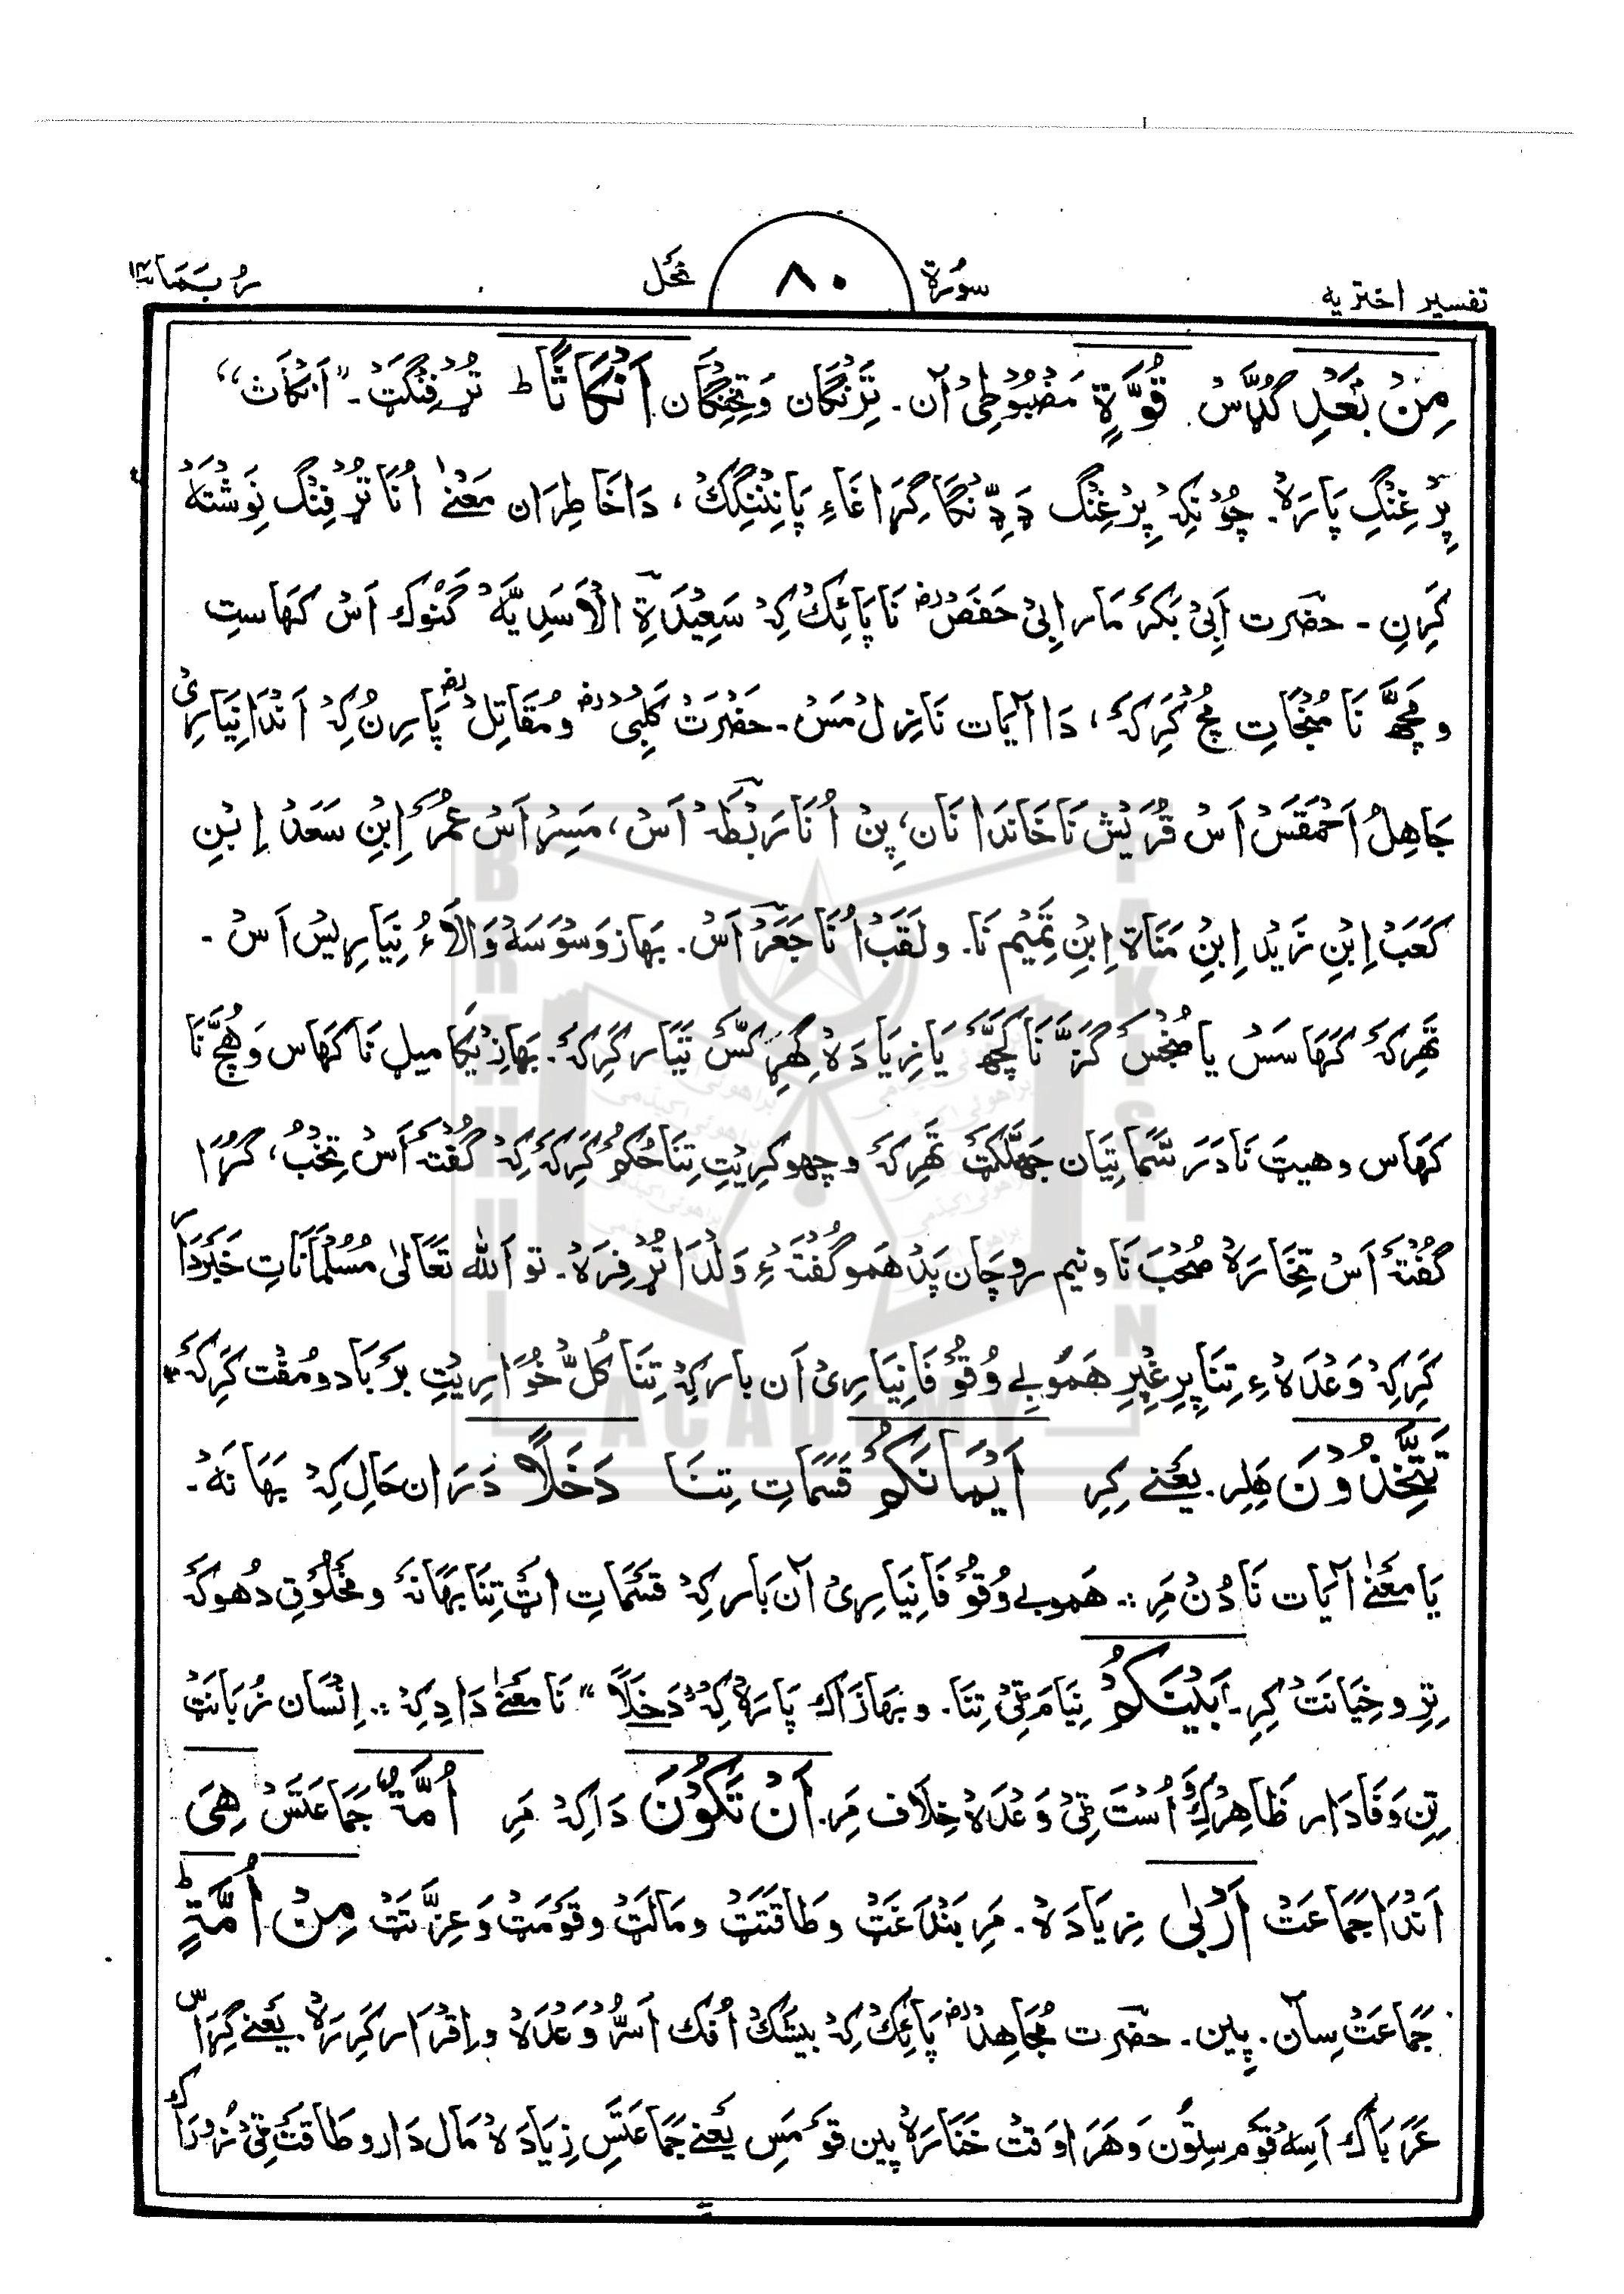 تفسیر اختریه سُورَة ۸۰ نَحَل رُبَمَا ۱۴
مِنْۢ بَعْدِ گُڈَّاسْ قُوَّةٍ مَضبُوطِیْ آن۔ تِرِّنگَان وَتِخِنگَان اَنْکَاثًا ط تُڑفِنگَٹ۔ “اَنکَاث”
پِرْغِنْگِ پَارَہ۔ چُوْنکِہ پِرْغِنگ دَدِّنگَا گِرَاغَاءِ پَانِنْنِگِکْ، دَاخَاطِرَان مَعْنٰے اُنَا تُڑفِنگ نِوِشْتَہ
کَرِنِ ۔ حضرت اَبِیْ بَکَرْ مَار اِبِیْ حَفَصْ رض نَا پَائِکْ کِہ سَعِیْدَۃ الْاَسَدِیَّہ گَنُوْک اَسْ کَہَاستِ
و مَچھَّ نَا مُنْجَاتِ مُچ کَرِکَہ، دَا آیَات نَازِل مَسْ۔ حَضْرَتْ کَلبِیْ رض و مُقَاتِلْ رض پَارِنُ کِہ اَنْدَا نِیَارِیْ
جَاهِلُ اَحْمَقَسْ اَسْ قُرَیْش نَا خَاندَا نَان، پِن اُنَا رَبْطَہ اَسْ، مَسِرْ اَسْ عَمْرُ اِبْنِ سَعَدْ اِبْنِ
کَعَبْ اِبْنِ زَیْد اِبْنِ مَنَاة اِبْنِ تَمِیْم نَا۔ و لَقَبْ اُنَا جَعَرْ اَسْ۔ بَہَاز وَسْوَسَہ وَالَاءُ نِیَارِیسْ اَسْ ۔
تَهِرکَہ کَہَاسَسْ یَا مُنْجسْ گَزَّ نَا کَچھَّ یَا زِیَادَہ گِهِرَکسَّ تَیَّار کَرِکَہ۔ بَہَاز یَکَا میل نَا کَہَاس وَ هُچَّ نَا
کَہَاس و هیٹ نَا دَرَسَّمَاتِیَان جَهلَّکَٹَ تَهرکَہ و چھوکرِیْتِ تِنَا حُکم کَرِکَہ کِہ گُفْتَہ اَسْ تِخْبُ، گُڑَا
گُفْتَہ اَسْ تِخَارَہ صُحْبَ نَا و نیم روچَان پَدْ هَمو گُفْتَہ ءِ وَلْدَا تُڑفِرَہ۔ تو اَللّٰه تَعَالٰی مُسْلِمَانَاتِ خَبَرْدَار
کَرِکِہ وَعْدَہ ءِ تِنَا پِرِغِپِرِ هَمُوبِے وُقُوْفَا نِیَارِیْ اَن بار کِہ تِنَا کُلّ خُوَارِیْتِ بَرْبَاد و مُفْت کَرِکَہ
تَتَّخِذُوْنَ هَلِر۔ یَعْنے کِرِ اَیْمَانَکُمْ قَسَمَاتِ تِنَا دَخَلًا دَرَان حَال کِہ بَهَانَہ۔
یَا مَعْنٰے آیَات نَا دُنْ مَرِ:۔ هَموبے وُقُوْفَا نِیَارِیْ آن بَار کِہ قَسَمَاتِ اٹ تِنَا بَهَانَہ و مَخْلُوقِ دُهوکَہ
تِرِ و خِیَانَتْ کِرِ۔ بَیْنَکُمْ نِیَامَ ٹِیْ تِنَا۔ و بَهَازَاک پَارَہ کِہ “دَخَلًا” نَا مَعْنٰے دَادِ کِہ:۔ اِنْسَان زُبَانَٹ
تِنِ وَفَادَار ظَاهِر کِ وَ اُسْتَ ٹِیْ وَعْدَہ خِلَاف مَرِ۔ اَنْ تَکُوْنَ دَاکِہ مَرِ اُمَّةٌ جَمَاعَتَسْ هِیَ
اَنْدَا جَمَاعَتْ اَرْبٰی زِیَادَہ ۔ مَرِ بَنْدَغَٹْ وطَاقَتَٹْ و مَالَٹْ و قَوْمَٹ وَعِزَّتَٹ مِنْ اُمَّةٍ ط
جَمَاعَتْ سِآن۔ پِین۔ حضرت مُجَاهِدْ رض پَائِکْ کِہ بیشَکْ اُفک اَسرُّ وَعْدَہ و اِقرَار کَرِرَہ۔ یَعْنے گِرَاس
عَرَبَاک اَسِہ قَوْم سِتُّون وَهَرَا وَقت خَنَارَہ پین قَوْمَس یَعْنے جَمَاعَتَس زِیَادَہ مَال دَار و طَاقَتَ ٹِیْ زُورَاک